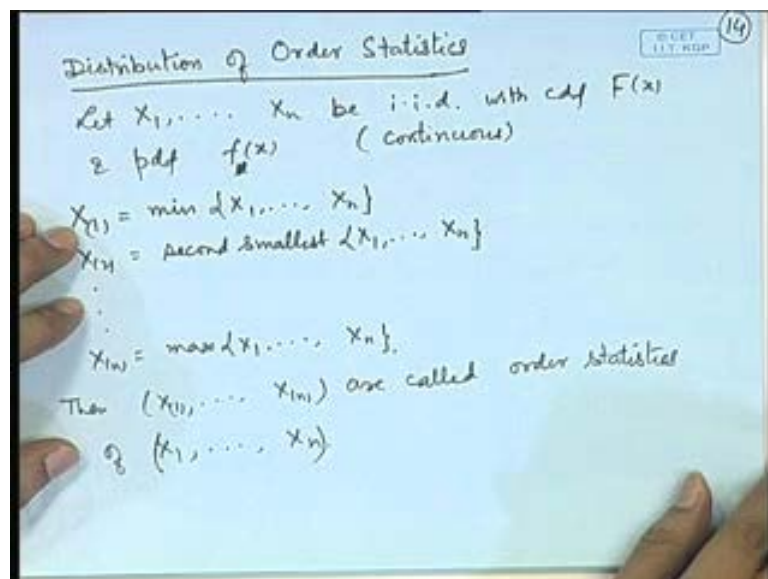 14
© CET
I.I.T. KGP
Distribution of Order Statistics
Let X₁, .... Xₙ be i.i.d. with cdf F(x)
& pdf f(x) (continuous)
X₍₁₎ = min {X₁, ..., Xₙ}
X₍₂₎ = second smallest {X₁, ..., Xₙ}
⋮
X₍ₙ₎ = max {X₁, ...., Xₙ}.
Then (X₍₁₎, .... X₍ₙ₎) are called order statistics
of (X₁, ...., Xₙ)